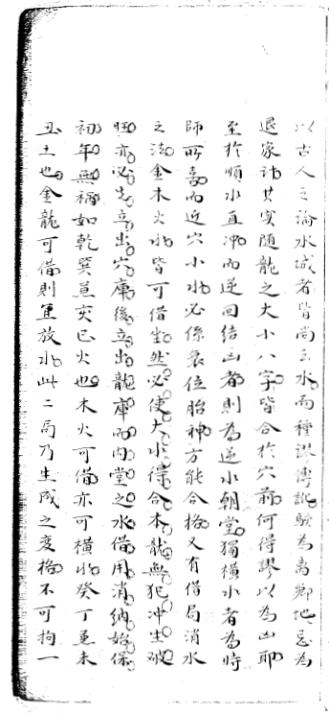 以古人之論水城者皆尚玉水而種謀傳訛駁為离鄉地忌為
退家計其实随龍之大小八字皆合於穴前何得謬以為山耶
至於順水直冲而逆回结出者則為逆水朝堂獨橫水者為時
師所喜而近穴小水必係衰位胎神方能合格又有借局消水
之法金木火水皆可借生然必使大水得合本龍無犯冲生破
旺亦必先立出穴庫後立出龍庫而内堂之水借用消納始保
初年無禍如乾巽蒸亥巳火也木火可借亦可橫水癸丁丑未
丑土也金龍可借則宜放水此二局乃生成之变格不可拘一